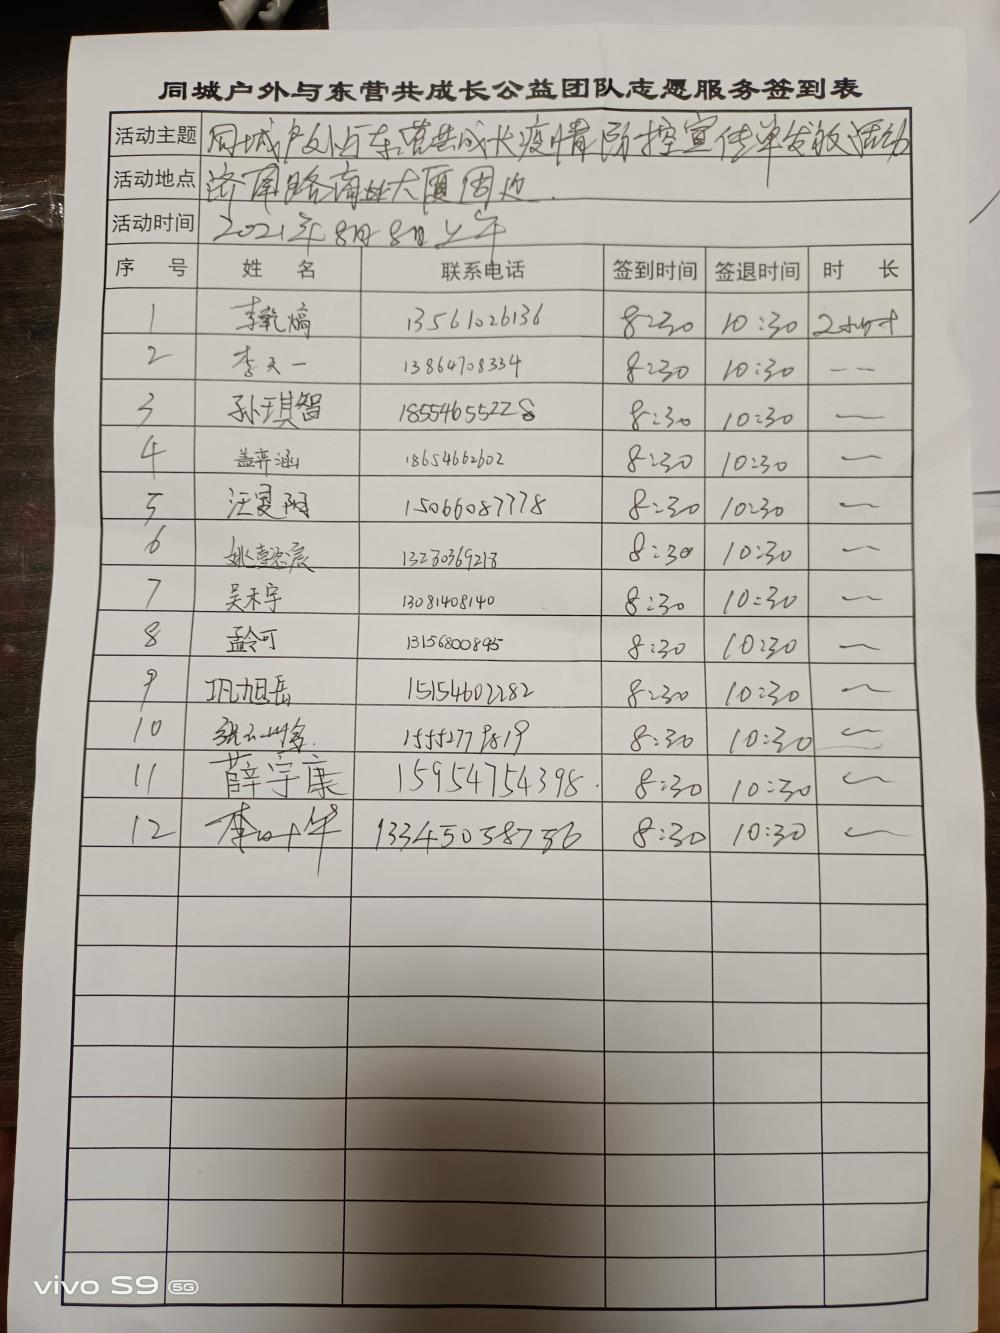 同城户外与东营共成长公益团队志愿服务签到表
活动主题 同城户外与东营共成长疫情防控宣传单发放活动
活动地点 济南路商业大厦周边.
活动时间 2021年8月8日上午
序号 姓名 联系电话 签到时间 签退时间 时长
1 李乾熇 13561026136 8:30 10:30 2小时
2 李天一 13864708334 8:30 10:30 --
3 孙琪智 18554655228 8:30 10:30 —
4 盖弈涵 18654662602 8:30 10:30 —
5 汪夏阳 15066087778 8:30 10:30 —
6 姚懿宸 13280369218 8:30 10:30 —
7 吴禾宇 13081408140 8:30 10:30 —
8 孟令可 13156800895 8:30 10:30 —
9 巩旭岳 15154602282 8:30 10:30 —
10 15552779819 8:30 10:30 —
11 薛宇康 15954754398. 8:30 10:30 —
12 李叶华 13345058756 8:30 10:30 —
vivo S9 5G